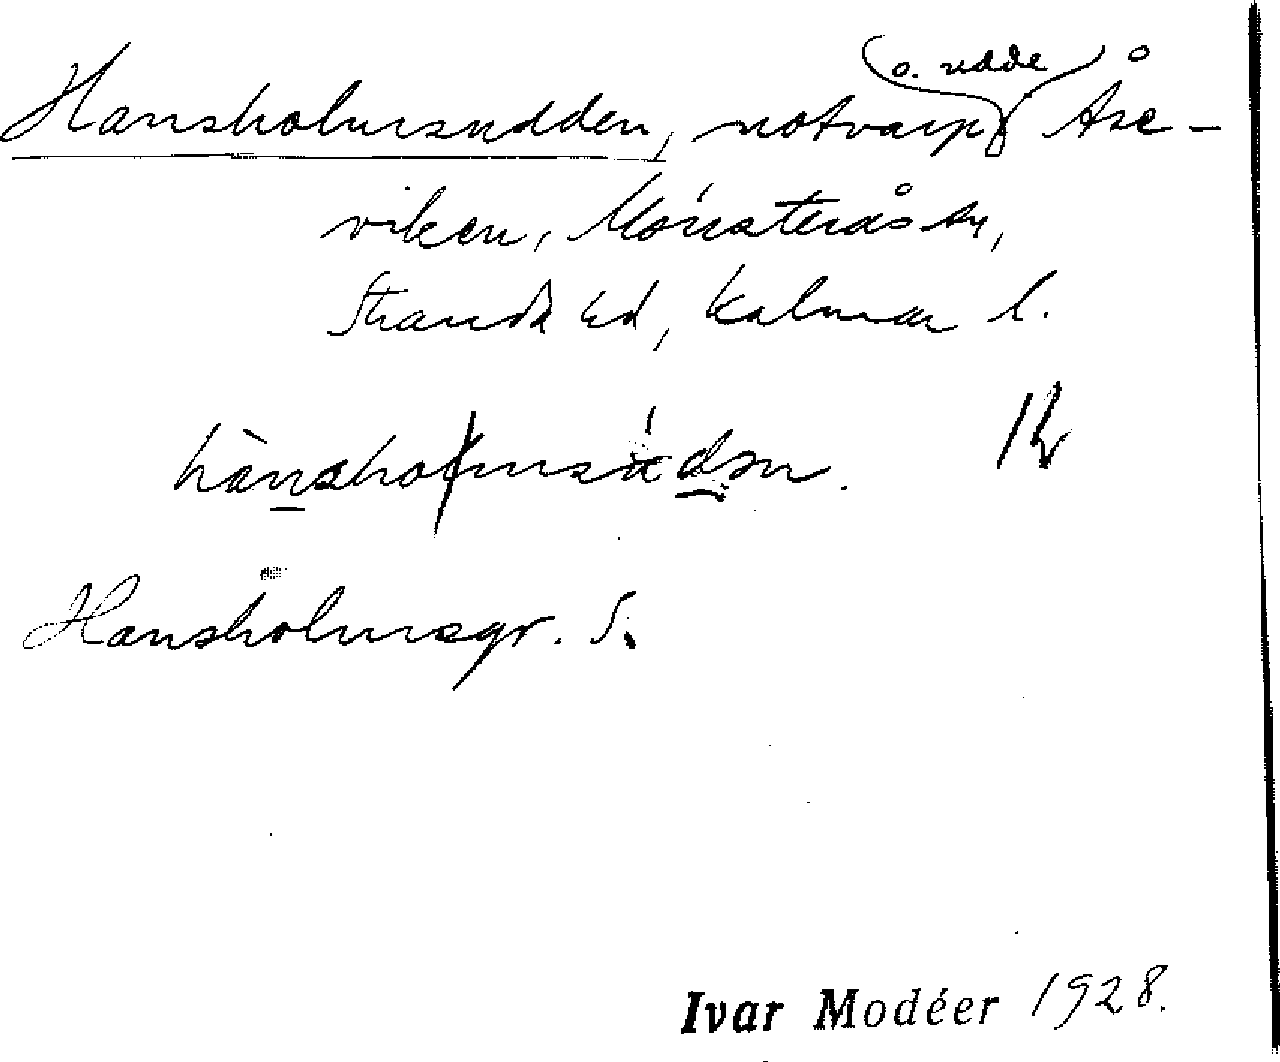 Hansholmsudden, notvarp o. udde, Åse-
viken, Mönsterås sn,
Stranda hd, Kalmar l.
hànshoɫmsúdən.
Hansholmsgr. S.
Ivar Modéer 1928.